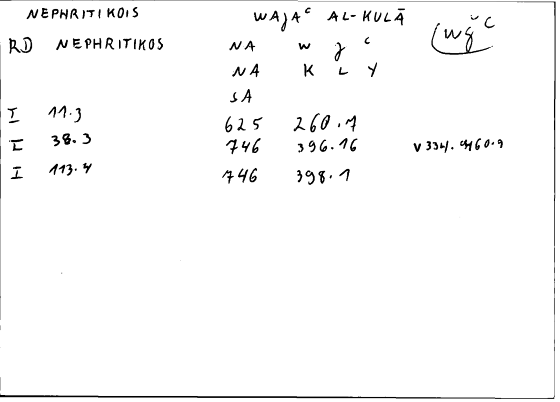 NEPHRITIKOIS WAJAᶜ AL-KULĀ (wǧᶜ
RD NEPHRITIKOS NA W J ᶜ
NA K L Y
SA
I 11.3 625 260.7
I 38.3 746 396.16
I 113.4 746 398.1